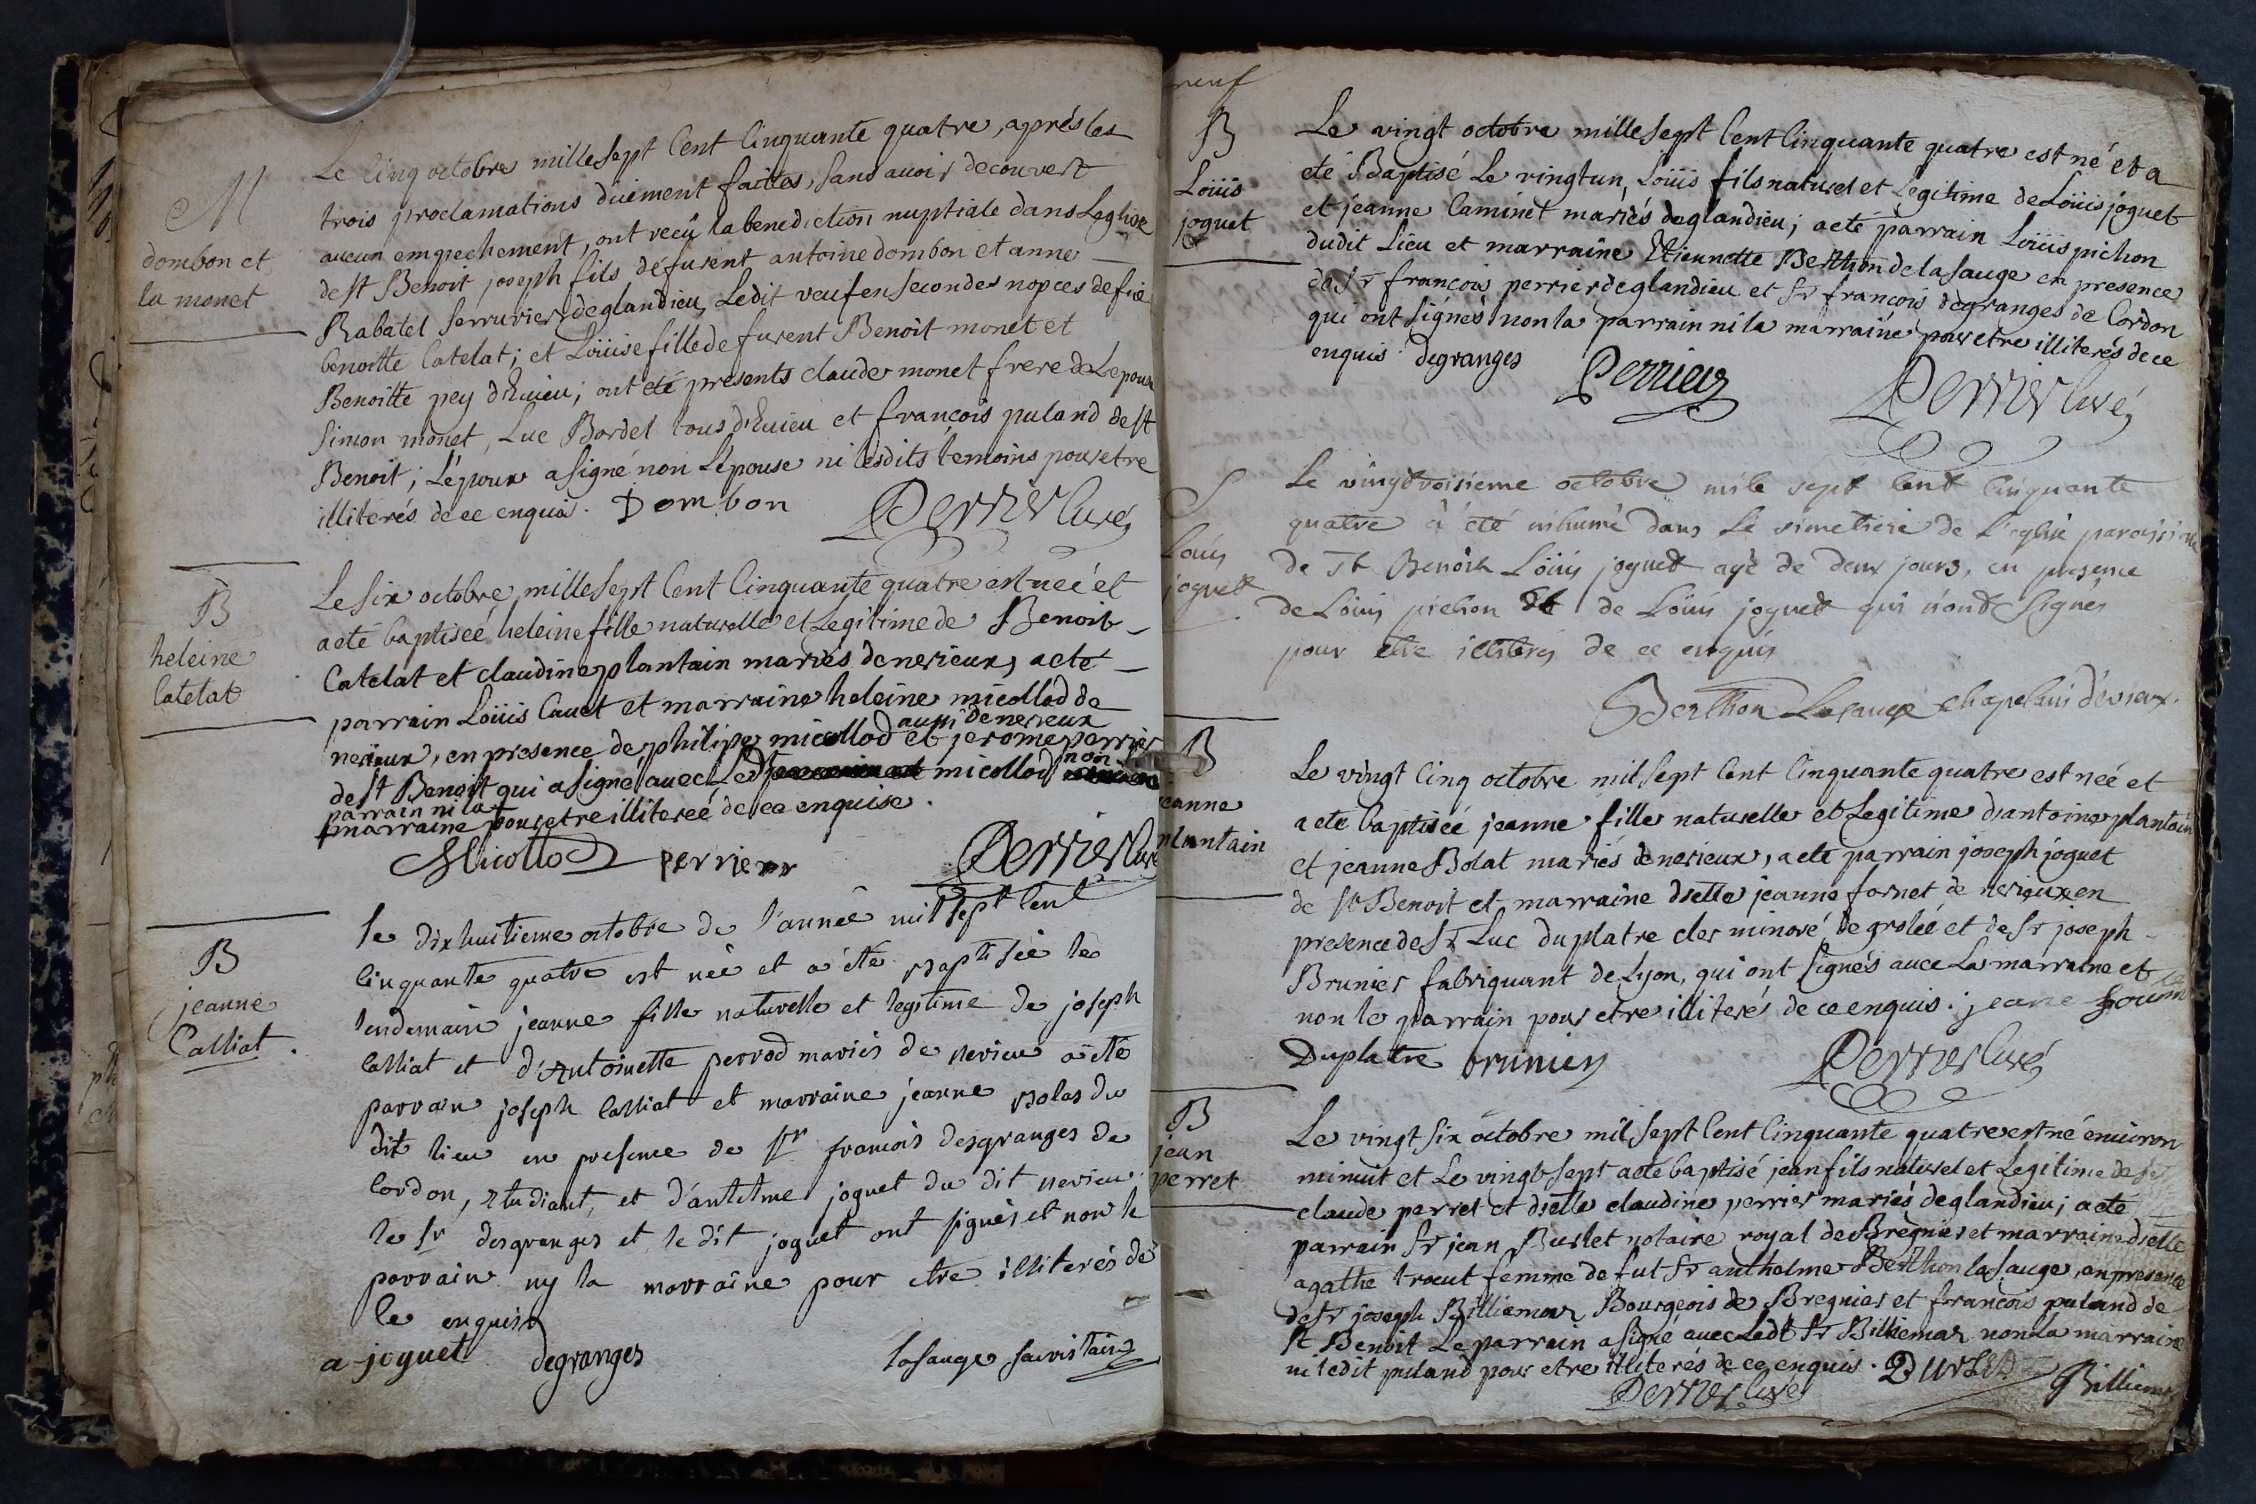 M
dombon et
la monet
Le cinq octobre mille sept cent cinquante quatre, aprés les
trois proclamations düement faittes, sans avoir decouvert
aucun empechement, ont recû la benediction nuptiale dans Leglise
de st Benoit joseph fils défurent antoine dombon et anne
Rabatel serrurier deglandieu, Ledit veuf en secondes nopces de füe
benoitte Catelat; et Loüise fille de furent Benoit monet et
Benoitte pey d'Evieu; ont eté presents claude monet frere de Lepouse
Simon monet, Luc Bordel tous d'Evieu et françois puland de st
Benoit; L'époux a signé non L'épouse ni lesdits témoins pour etre
illiterés de ce enquis. Dombon Perrier curé
B
heleine
Catelat
Le six octobre mille sept cent cinquante quatre est neé et
a eté baptiseé heleine fille naturelle et Legitime de Benoit
Catelat et claudine plantain mariés de nerieux, a eté
parrain Loüis Cauet et marraine heleine micollod de
nerieux, en presence de philipe micollod aussi de nerieux et jerome perrier
de st Benoit qui a signé avec Ledt micollod non
parrain ni la
marraine pour etre illitereé de ce enquise.
Micollod perrier Perrier Curé
B
jeanne
Calliat.
le dixhuitieme octobre de l'année mil sept cent
cinquante quatre est neé et a été baptisée le
lendemain jeanne fille naturelle et legitime de joseph
Calliat et d'Antoinette perrod mariés de nerieu a été
parrain joseph Calliat et marraine jeanne bolas du
dit lieu en presence de Sr francois desgranges de
Cordon, etudiant, et d'antelme joguet du dit nerieu
le Sr desgranges et le dit joguet ont signés et non le
parrain ny la marraine pour etre illiterés de
ce enquis
a joguet degranges lasauge sacristain
neuf
B
Loüis
joguet
Le vingt octobre mille sept cent cinquante quatre est né et a
eté Baptisé Le vingt un, Loüis fils naturel et Legitime de Loüis joguet
et jeanne Caminet mariés deglandieu; a eté parrain Loüis pichon
dudit Lieu et marraine Etiennette Berthon de la sauge en presence
de Sr françois perrier deglandieu et Sr françois degranges de Cordon
qui ont signés non la parrain ni la marraine pour etre illiterés de ce
enquis. degranges Perrier Perrier Curé
S
Loüis
joguet
Le vingtroisieme octobre mile sept cent cinquante
quatre à été inhumé dans le simetiere de l'eglise paroissiale
de St Benoit Loüis joguet agé de deux jours, en presence
de Loüis pichon et de Loüis joguet qui n'ont signés
pour etre illitérés de ce enquis
Berthon Lasauge chapelain d'évieux.
B
jeanne
plantain
Le vingt cinq octobre mil sept cent cinquante quatre est neé et
a eté baptiseé jeanne fille naturelle et Legitime d'antoine plantain
et jeanne Bolat mariés de nerieux, a eté parrain joseph joguet
de st Benoit et marraine dselle jeanne fornet de nerieux en
presence de Sr Luc duplatre clerc minoré de groleé et de Sr joseph
Brunier fabriquant de Lyon, qui ont signés avec La marraine et
non le parrain pour etre illiteré de ce enquis. jeane
Duplatre brunier Perrier Curé
B
jean
perret
Le vingt six octobre mil sept cent cinquante quatre est né environ
minuit et Le vingt sept a eté baptisé jean fils naturel et Legitime de Sr
claude perret et dselle claudine perrier mariés deglandieu; a eté
parrain Sr jean Burlet notaire royal de Bregnier et marraine dselle
agathe trocut femme de fut Sr anthelme Berthon la sauge, en presence
de Sr joseph Billiemaz Bourgeois de Bregnier et françois puland de
st Benoit Le parrain a signé avec Ledt Sr Billiemaz non La marraine
ni ledit puland pour etre illiterés de ce enquis. Burlet Billiemaz
Perrier Curé